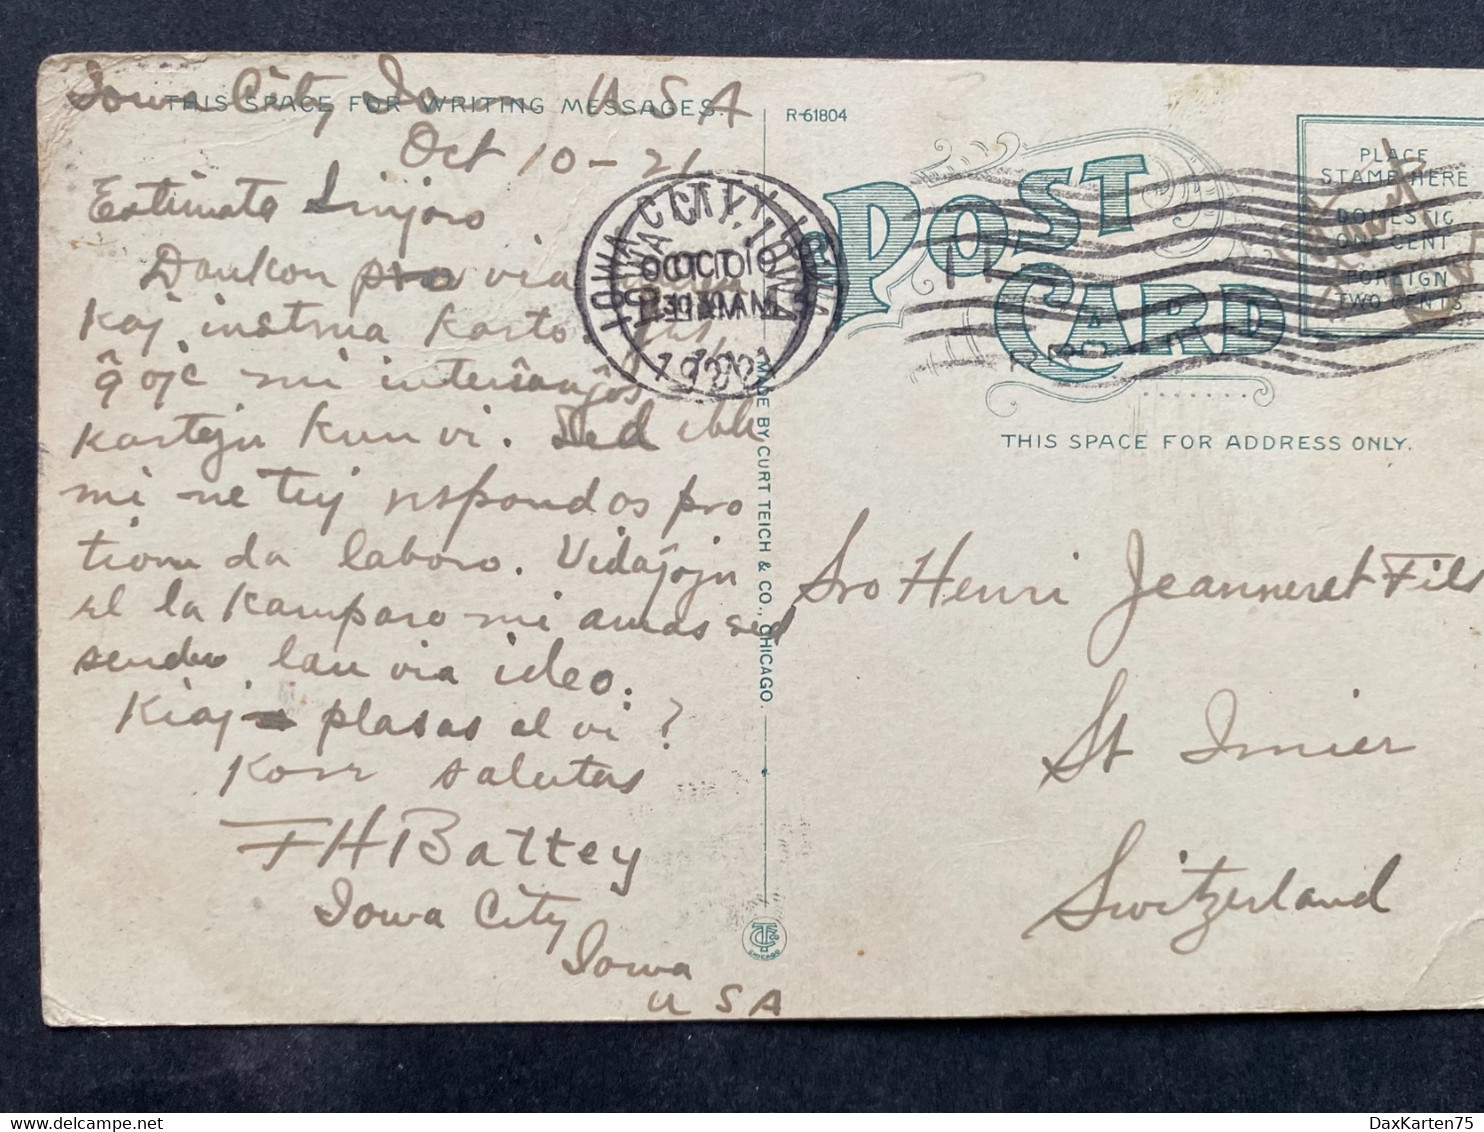 Iowa City Ia — U S A
THIS SPACE FOR WRITING MESSAGES.
Oct 10 - 21
Estimata Sinjoro
Dankon pro via
Kaj instrua Karto.
ĝoje mi interŝanĝos
kartojn kun vi. Sed eble
mi ne tuj respondos pro
tiom da laboro. Vidaĵojn
el la Kamparo mi amas sed
sendu laŭ via ideo.
Kiaj plasas al vi?
Kore salutas
F H Battey
Iowa City
Iowa
U S A
R-61804
POST
CARD
IOWA CITY, IOWA
OCT 10
1921
PLACE
STAMP HERE
DOMESTIC
ONE CENT
FOREIGN
TWO CENTS
THIS SPACE FOR ADDRESS ONLY.
MADE BY CURT TEICH & CO., CHICAGO.
Sro Henri Jeanneret Fils
St Imier
Switzerland
CHICAGO
DaxKarten75
www.delcampe.net